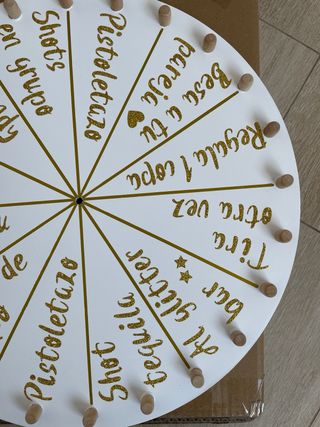 Shots
en grupo
Pistoletazo
Besa a tu
pareja
Regala 1 copa
Tira
otra vez
Al glitter
bar
Shot
tequila
Pistoletazo
de